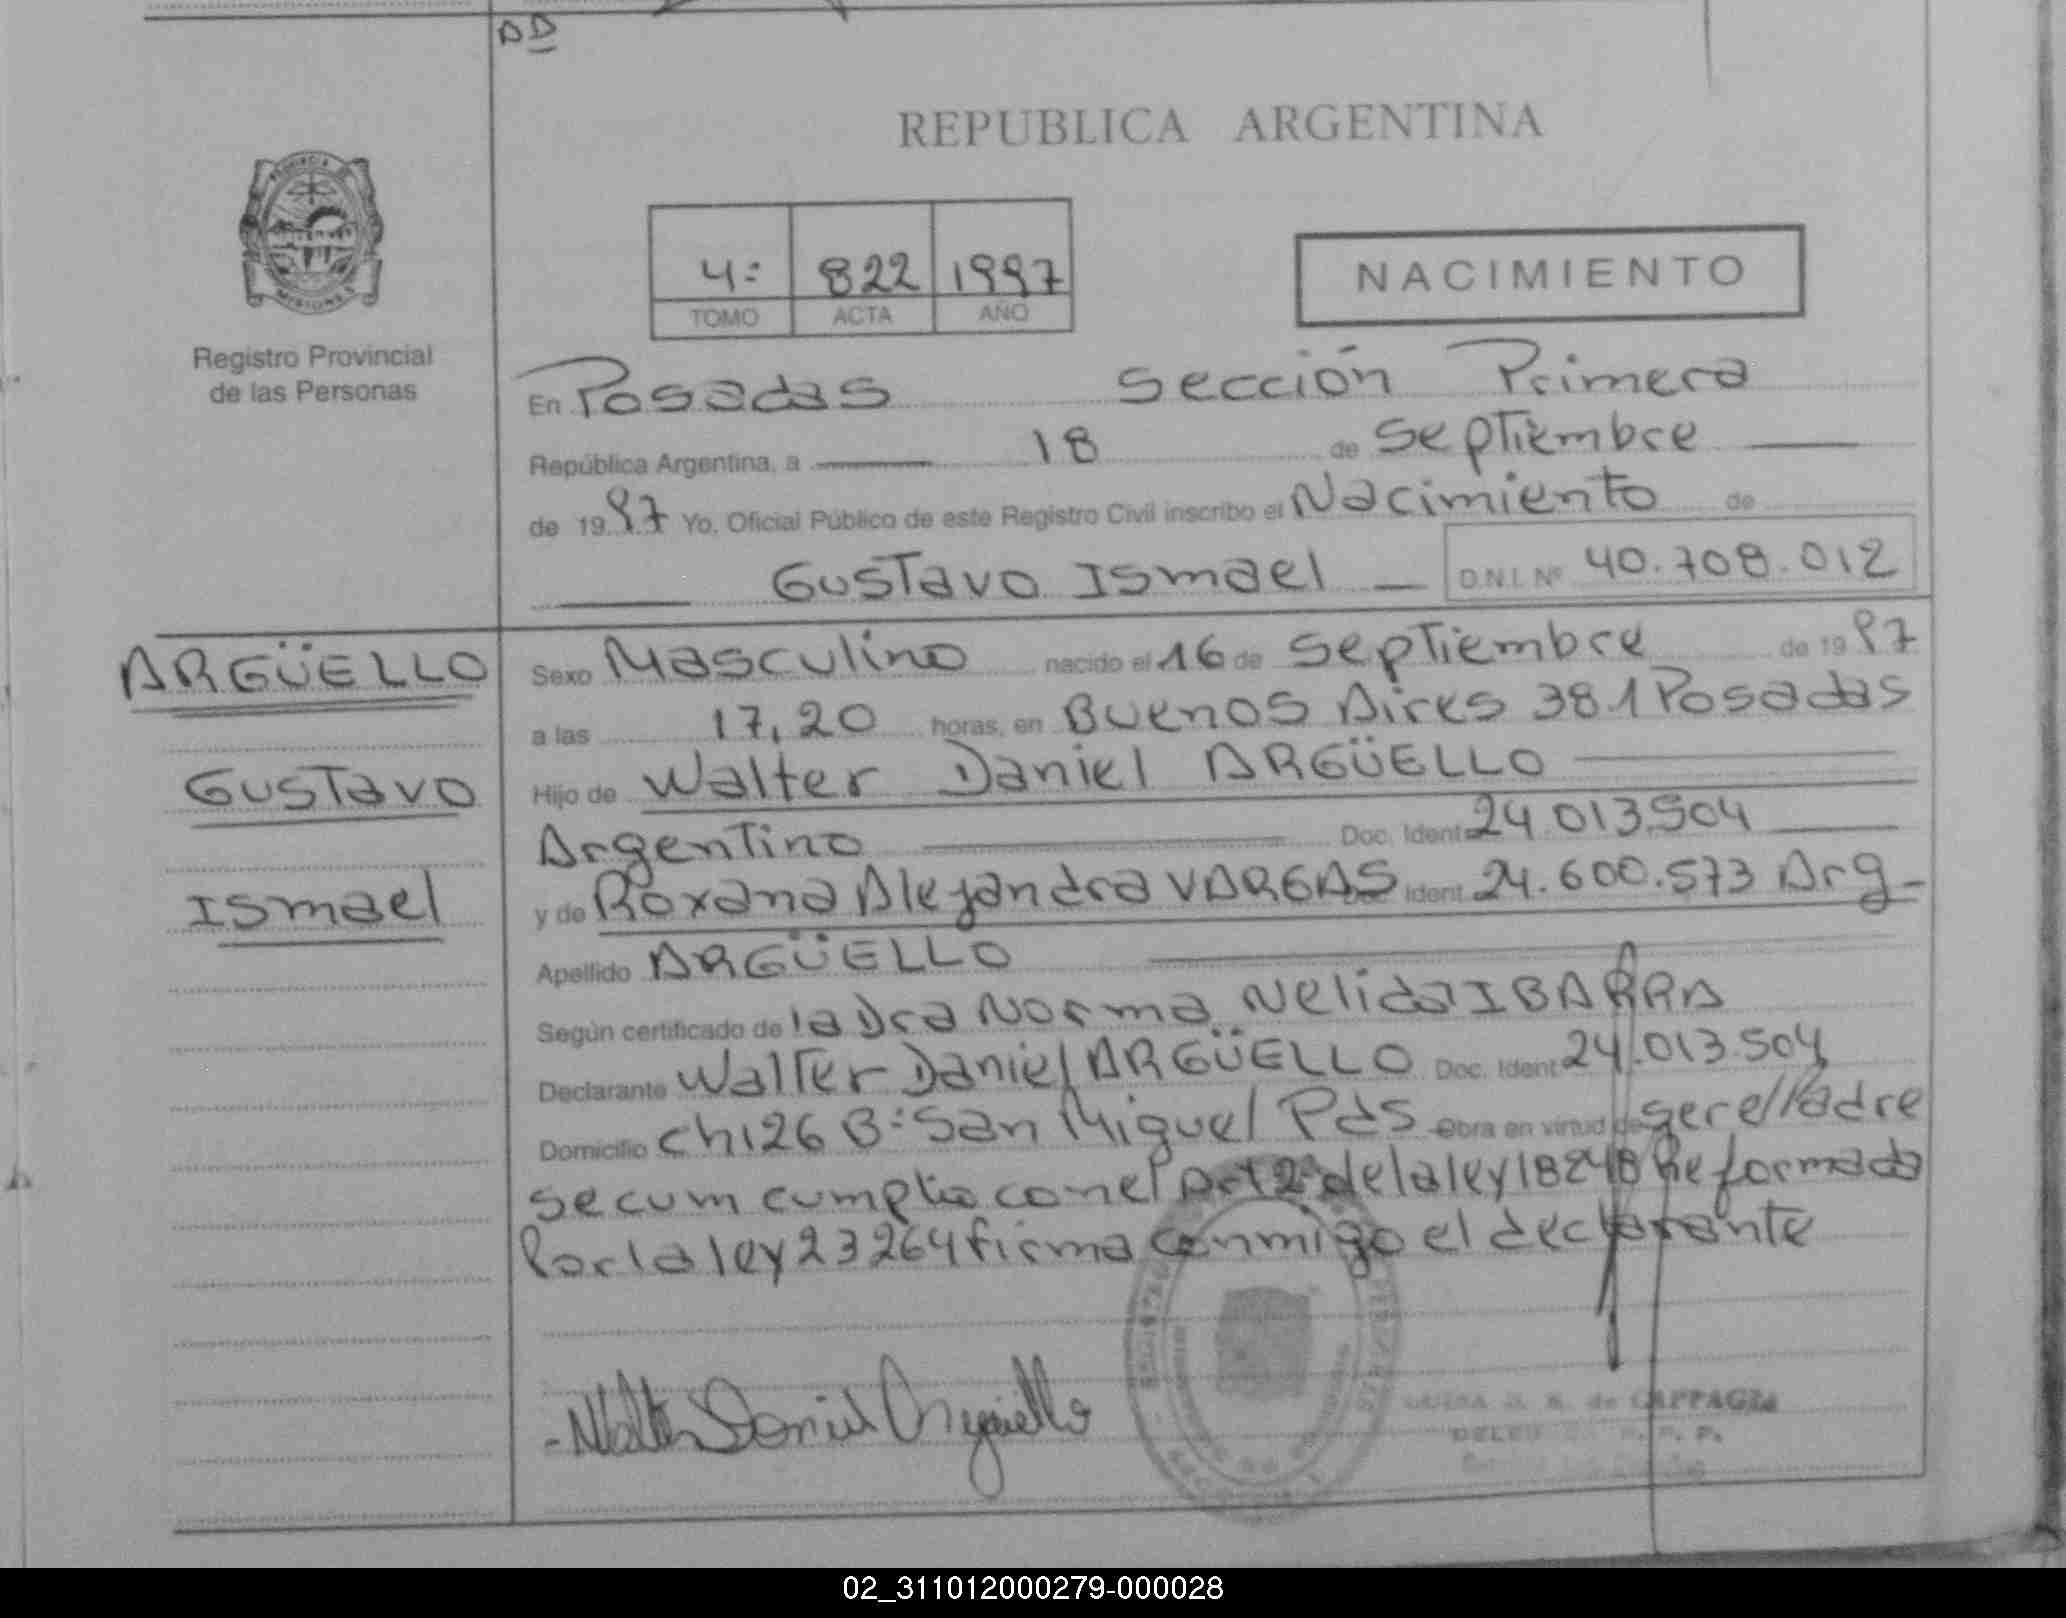 DD
REPUBLICA ARGENTINA
PROVINCIA DE
MISIONES
Registro Provincial
de las Personas
4: 822 1997
TOMO ACTA AÑO
NACIMIENTO
En Posadas Sección Primera
República Argentina, a 18 de Septiembre
de 1997 Yo, Oficial Público de este Registro Civil inscribo el Nacimiento de
Gustavo Ismael D.N.I. Nº 40.708.012
ARGÜELLO
Gustavo
Ismael
Sexo Masculino nacido el 16 de Septiembre de 1997
a las 17,20 horas, en Buenos Aires 381 Posadas
Hijo de Walter Daniel ARGÜELLO
Argentino Doc. Ident 24.013.504
y de Roxana Alejandra VARGAS Doc. Ident. 24.600.573 Arg
Apellido ARGÜELLO
Según certificado de la Dra Norma Nelida IBARRA
Declarante Walter Daniel ARGÜELLO Doc. Ident 24.013.504
Domicilio ch126 B: San Miguel Pdas Obra en virtud de ser el Padre
se cum cumplio con el Art 2º de la ley 18248 Reformada
Por la ley 23264 firma conmigo el declarante
Walter Daniel Arguello
de CAPPAGLI
02_311012000279-000028